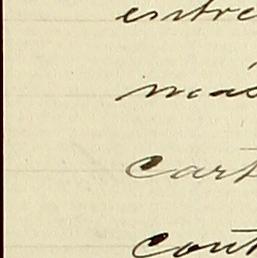 entre
mas
cart
cont